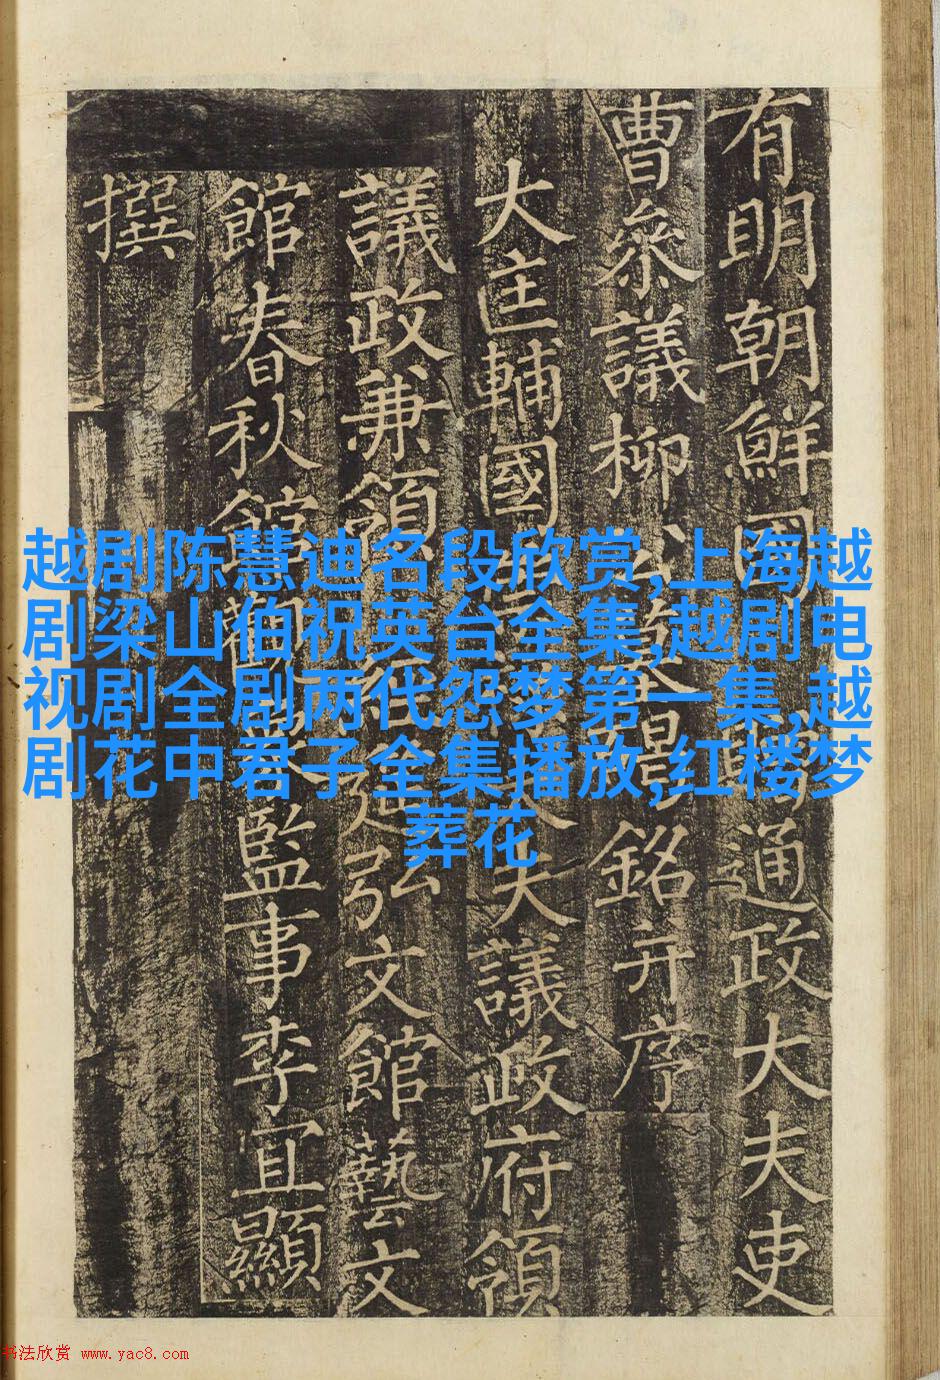 有明朝鮮國通政大夫吏
曹叅議柳公墓碣銘并序
大匡輔國崇祿大夫議政府領
議政兼領經筵弘文館藝文
館春秋館觀象監事李宜顯
撰
越剧陈慧迪名段欣赏,上海越
剧梁山伯祝英台全集,越剧电
视剧全剧两代怨梦第一集,越
剧花中君子全集播放,红楼梦
葬花
书法欣赏 www.yac8.com